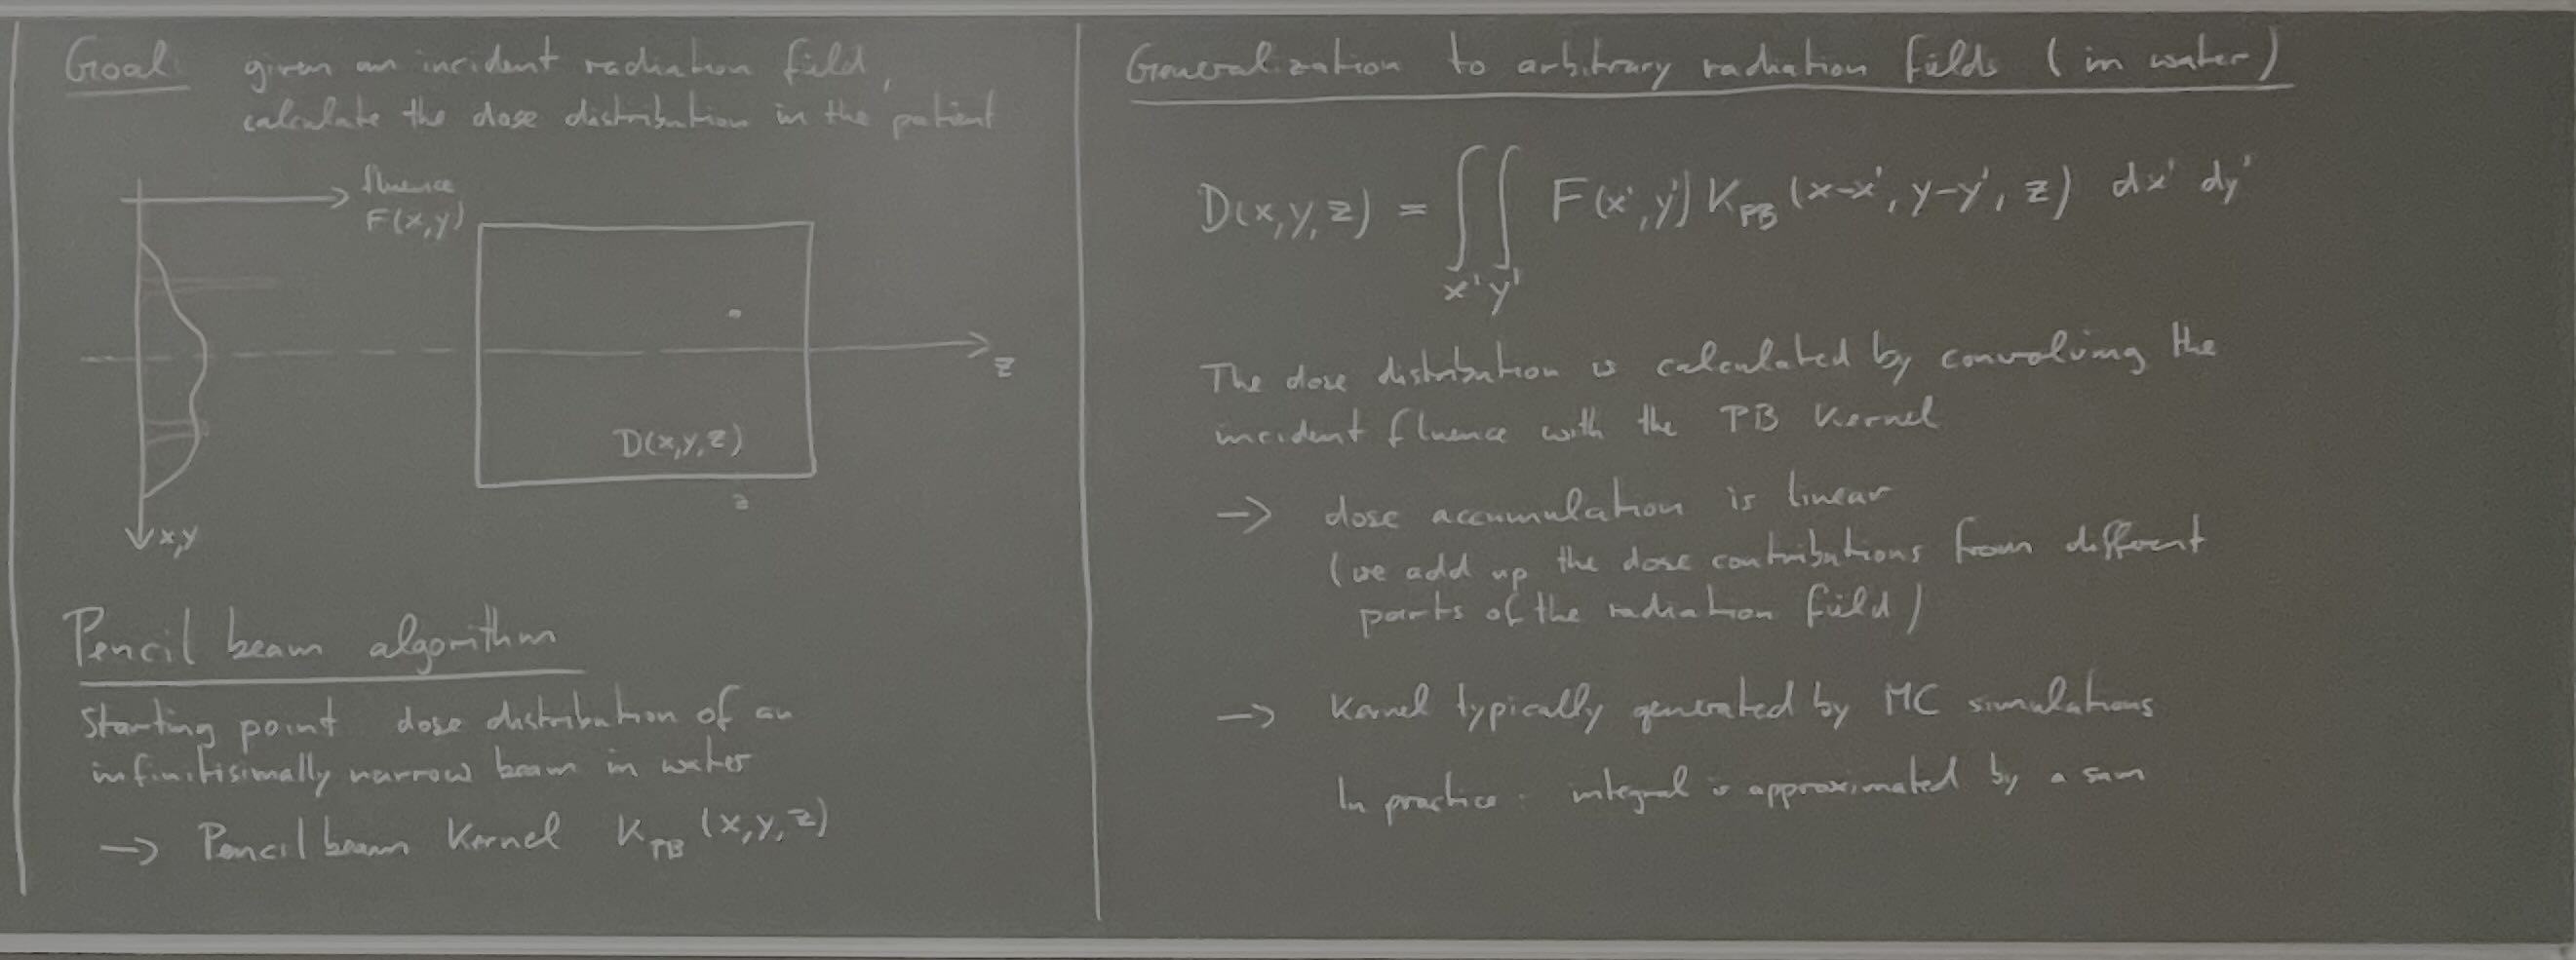 Goal: given an incident radiation field,
calculate the dose distribution in the patient
fluence
F(x,y)
z
D(x,y,z)
z
x,y
Pencil beam algorithm
Starting point dose distribution of an
infinitisimally narrow beam in water
→ Pencil beam Kernel K_PB (x,y,z)
Generalization to arbitrary radiation fields (in water)
D(x,y,z) = ∬ F(x',y') K_PB (x-x', y-y', z) dx' dy'
x' y'
The dose distribution is calculated by convolving the
incident fluence with the PB Kernel
→ dose accumulation is linear
(we add up the dose contributions from different
parts of the radiation field)
→ Kernel typically generated by MC simulations
In practice: integral is approximated by a sum